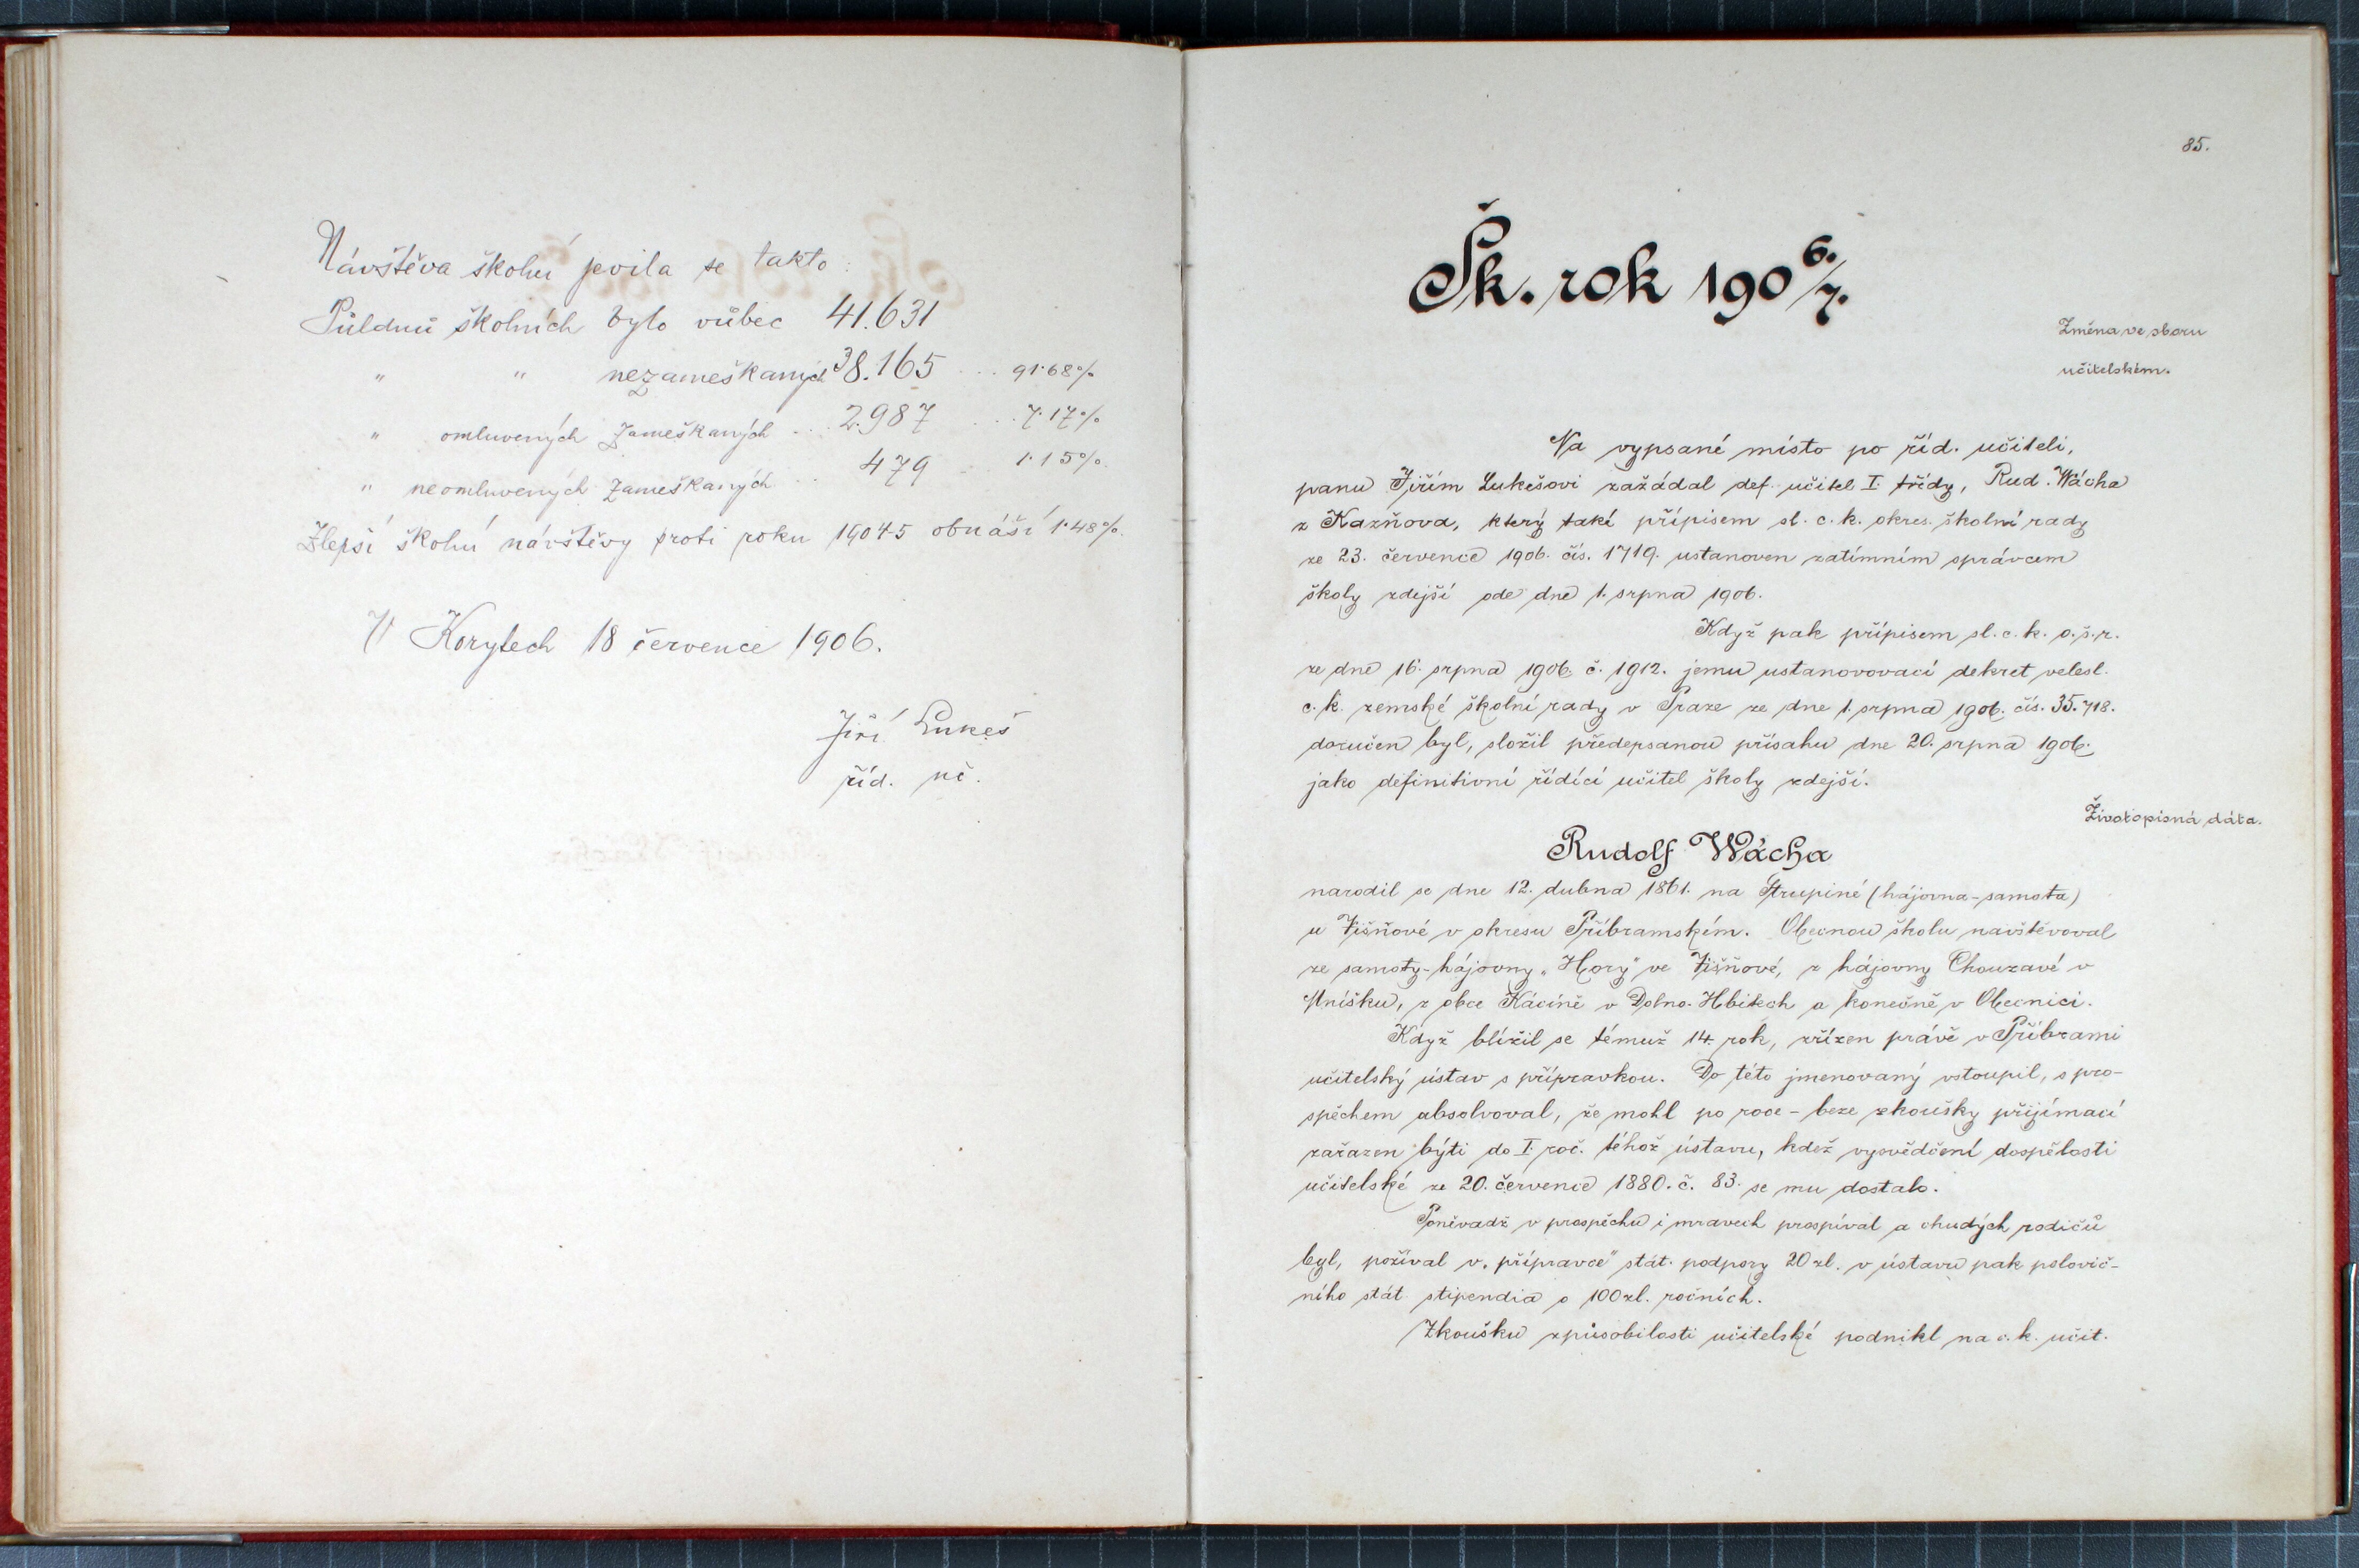 Návštěva školní jevila se takto:
Půldnů školních bylo vůbec 41.631
" " nezameškaných 38.165 ... 91·68%
" omluvených zameškaných ... 2.987 ... 7·17%
" neomluvených zameškaných ... 479 ... 1·15%.
Zlepší školní návštěvy proti roku 1904-5 obnáší 1·48%.
V Korytech 18 července 1906.
Jiří Lukeš
říd. uč.
85.
Šk. rok 1906./7.
Změna ve sboru
učitelském.
Na vypsané místo po říd. učiteli,
panu Jiřím Lukešovi zažádal def. učitel I. třídy, Rud. Wácha
z Kazňova, který také přípisem sl. c. k. okres. školní rady
ze 23. července 1906. čís. 1719. ustanoven zatímním správcem
školy zdejší ode dne 1. srpna 1906.
Když pak přípisem sl. c. k. o. š. r.
ze dne 16. srpna 1906. č. 1912. jemu ustanovovací dekret velesl.
c. k. zemské školní rady v Praze ze dne 1. srpna 1906. čís. 35.718.
doručen byl, složil předepsanou přísahu dne 20. srpna 1906.
jako definitivní řídící učitel školy zdejší.
Životopisná dáta.
Rudolf Wácha
narodil se dne 12. dubna 1861. na (hájovna-samota)
u Višňové v okresu Příbramském. Obecnou školu navštěvoval
ze samoty-hájovny „Hory" ve Višňové, z hájovny Chouzavé v
Mníšku, z obce Kácíně v Dolno-Hbitech a konečně v Obecnici.
Když blížil se témuž 14. rok, zřízen právě v Příbrami
učitelský ústav s přípravkou. Do této jmenovaný vstoupil, s pro-
spěchem absolvoval, že mohl po roce - beze zkoušky přijímací
zařazen býti do I. roč. téhož ústavu, kdež vysvědčení dospělosti
učitelské ze 20. července 1880. č. 83. se mu dostalo.
Poněvadž v prospěchu i mravech prospíval a chudých rodičů
byl, požíval v „přípravce" stát. podpory 20 zl. v ústavu pak polovič-
ního stát. stipendia o 100 zl. ročních.
Zkoušku způsobilosti učitelské podnikl na c. k. učit.